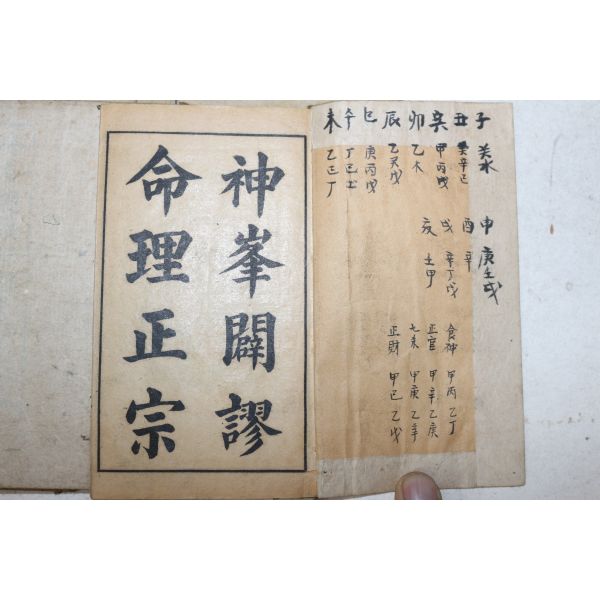 子 癸水
丑 癸辛己
辛 甲丙戊
卯 乙木
辰 乙癸戊
巳 庚丙戊
午 丁己土
未 乙己丁
申 庚壬戊
酉 辛
戌 辛丁戊
亥 壬甲
食神 甲丙乙丁
正官 甲辛乙庚
七杀 甲庚乙辛
正財 甲己乙戊
神峯闢謬
命理正宗